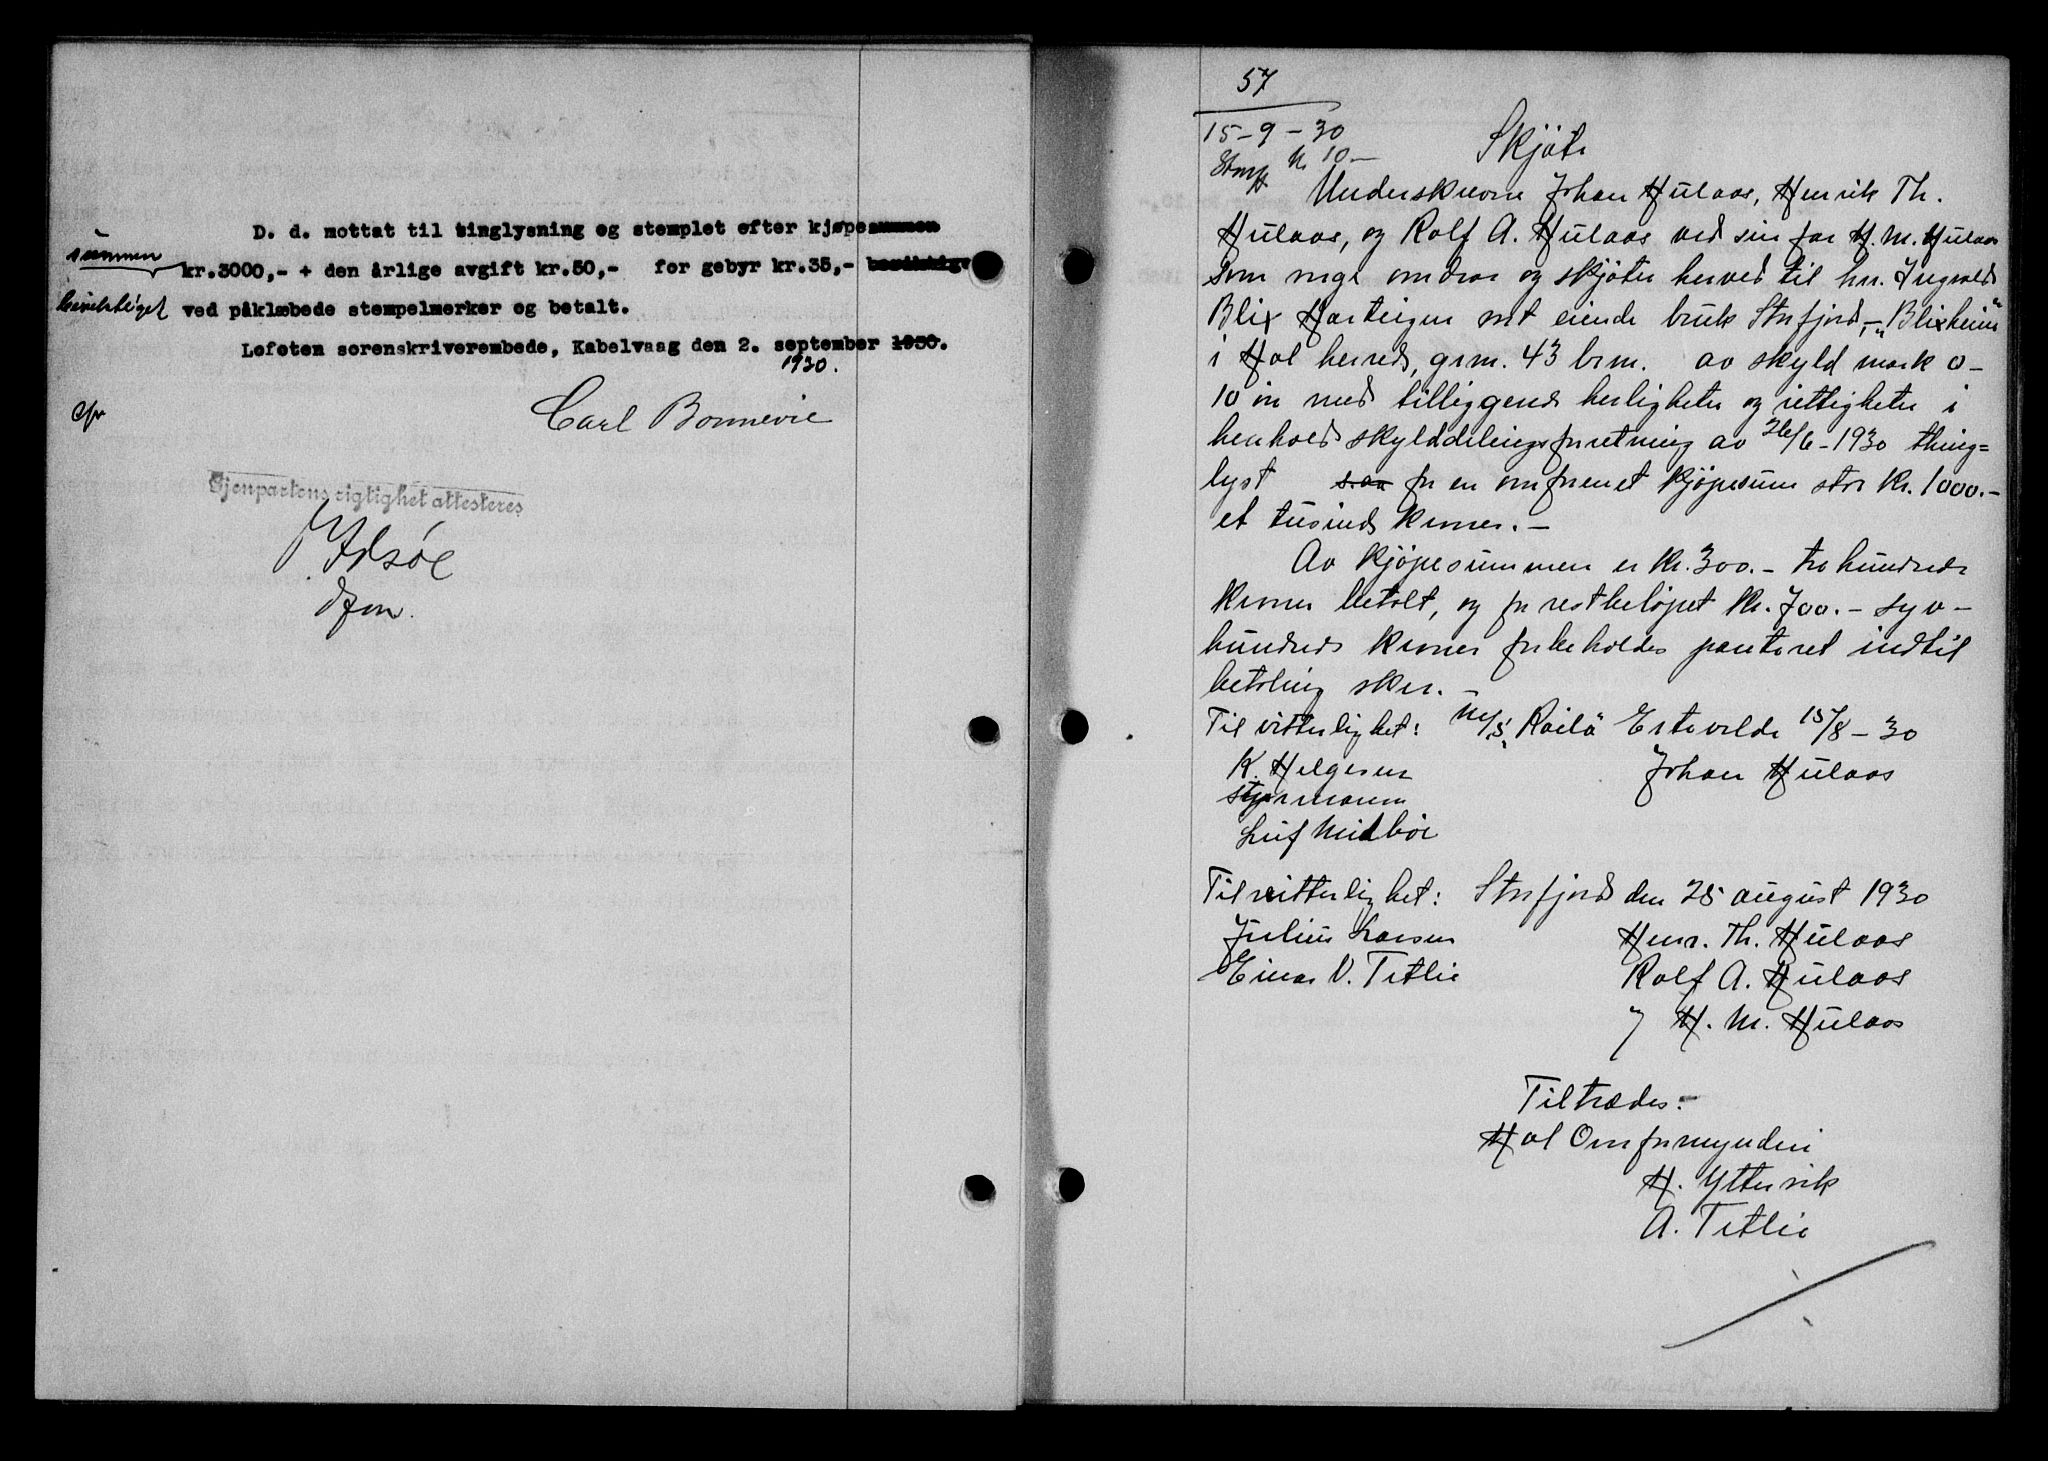 D. d. mottat til tinglysning og stemplet efter kjøpesummen
summen
kr.3000,- + den årlige avgift kr.50,- for gebyr kr.35,-
ved påklæbede stempelmerker og betalt.
Lofoten sorenskriverembede, Kabelvaag den 2. september 1930.
1930.
Carl Bonnevie
Gjenpartens rigtighet attesteres
57
15-9-30
Skjøte
Stemp kr 10.-
Underskrevne Johan Hulaas, Henrik Th.
Hulaas, og Rolf A. Hulaas ved sin far H. M. Hulaas
som verge omdrar og skjøter herved til hr. Ingvald
Blix Hartvigsen vort eiende bruk Storfjord, - "Blixheim"
i Hol herred, grm. 43 brm. av skyld mark 0-
10 øre med tilliggende herligheter og rettigheter i
henhold skylddelingsforretning av 26/6-1930 thing=
lyst for en omforenet kjøpesum stor kr. 1000.-
et tusind kroner. -
Av kjøpesummen er kr. 300.- tre hundrede
kroner betalt, og for restbeløpet kr. 700.- syv-
hundrede kroner forbeholdes panteret indtil
betaling sker. -
Til vitterlighet: M/S "Raila" Ertevelde 15/8-30
K. Helgesen Johan Hulaas
styrmann
Leif Midbøe
Til vitterlighet: Storfjord den 25 august 1930
Julius Larsen Henr. Th. Hulaas
Einar V. Tetlie Rolf A. Hulaas
H. M. Hulaas
Tiltrædes:-
Hol Overformynderi
H. Yttervik
A. Tetlie